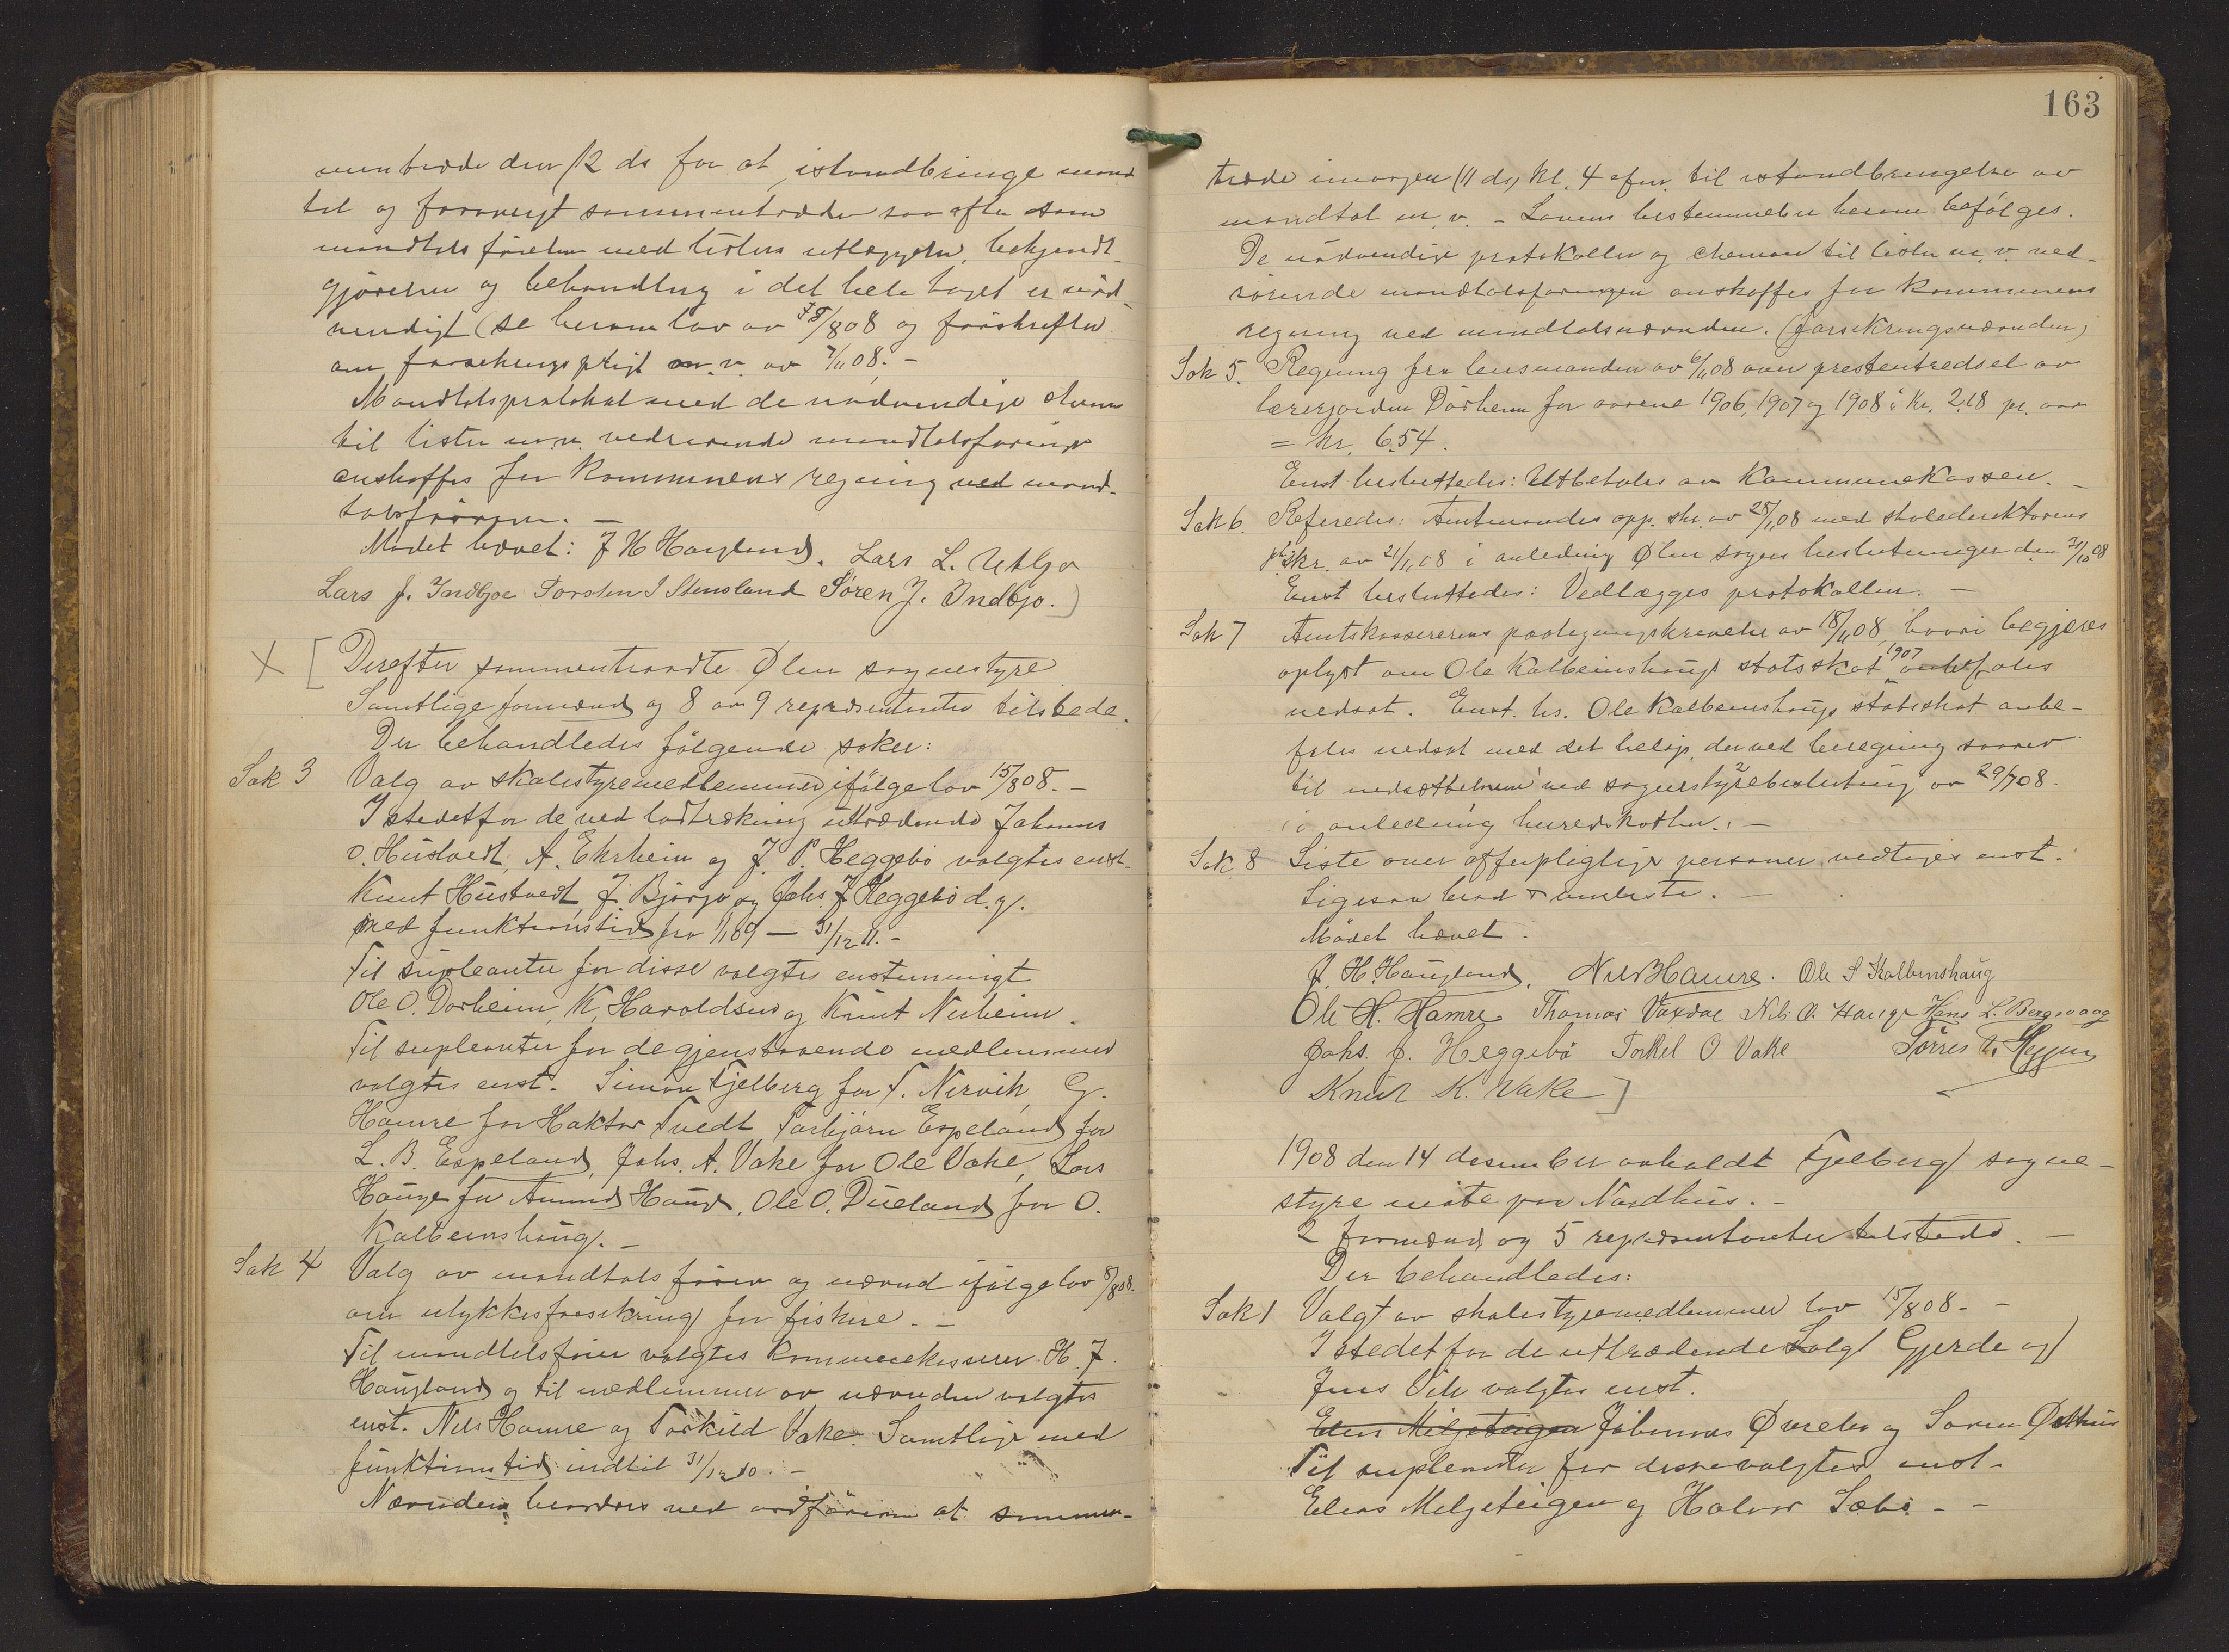 mentræde den 12 ds for at istandbringe mand
tal og forøvrigt sammentræde saa ofte som
mandtalsførelse med listers utlæggelse, bekjendt-
gjørelse og behandling i det hele taget er nød-
vendigt (se herom lov av 8/8 08 og forskrifter
om forsikringspligt m. v. av 7/11 08. -
Mandtalsprotokol med de nødvendige
til lister m.v. vedrørende mandtalsføringe
anskaffes for kommunens regning ved mand-
talsføreren. -
Mødet hævet: J H Haugland. Lars L. Utbjo
Lars J. Indbjoe Torsten I Stensland Søren J. Indbjo.]
X [ Derefter sammentraadte Ølen sognestyre
Samtlige formænd og 8 av 9 repræsentanter tilstede.
Der behandledes følgende saker:
Sak 3 Valg av skolestyremedlemmer ifølge lov 15/8 08. -
I stedetfor de ved lodtrækning uttrædende Johannes
O. Hustvedt, A. Ekrheim og J. P. Heggebø valgtes enst.
Knut Hustvedt, J. Bjørgo og Johs. J Heggebø d.y.
med funktionstid fra 1/1 09 - 31/12 11. -
Til supleanter for disse valgtes enstemmigt
Ole O. Dørheim, K. Haraldsen og Knut Nerheim.
Til supleanter for de gjenstaaende medlemmer
valgtes enst. Simon Fjelberg for T. Nervik, G.
Hamre for Haktor Tvedt Torbjørn Espeland for
L. B. Espeland, Johs. A. Vake for Ole Vake, Lars
Hauge for Amund Hauge, Ole O. Dueland for O.
Kalbeinshaug. -
Sak 4 Valg av mandtalsfører og nævnd ifølge lov 8/8 08.
om ulykkesforsikring for fiskere. -
Til mandtalsfører valgtes kommunekasserer H. J.
Haugland og til medlemmer av nævnden valgtes
enst. Nils Hamre og Torkild Vake. Samtlige med
funktionstid indtil 31/12 10. -
Nævnden beordres ved ordføreren at sammen-
163
træde imorgen (11 ds) kl. 4 efm. til istandbringelse av
mandtal m. v. - Lovens bestemmelser herom befølges.
De nødvendige protokoller og chemaer til lister m. v. ved-
rørende mandtalsføringen anskaffes for kommunens
regning ved mandtalsnævnden. (forsikringsnævnden)
Sak 5. Regning fra lensmanden av 6/11 08 over prestentredsel av
lærerjorden Dørheim for aarene 1906, 1907 og 1908 à kr. 2,18 pr. aar
= kr. 6.54.
Enst besluttedes: Utbetales av kommunekassen. -
Sak 6. Referedes: Amtmandes opp. skr. av 28/11 08 med skoledirektørens
skr. av 21/11 08 i anledning Ølen sogns beslutninger den 31/10 08
Enst besluttedes: Vedlægges protokollen. -
Sak 7 Amtskassererens paategningskrivelse av 18/11 08, hvori begjæres
oplyst om Ole Kalbeinshaugs statsskat 1907 anbefales
nedsat. Enst. bs. Ole Kalbeinshaugs statsskat anbe-
fales nedsat med det beløp, der ved beregning svarer
til nedsættelsene ved sognestyrebeslutning av 29/7 08.
i anledning herredskatten. -
Sak 8 Liste over offerpligtige personer vedtages enst.
Ligesaa
Mødet hævet.
J. H. Haugland, Nils Hamre. Ole S Kalbenshaug
Ole H. Hamre Thomas Vaxdal Nils O. Hauge Hans L. Bergsvaag
Johs. J. Heggebø Torkel O Vake Tørres Heggen
Knut K. Vake ]
1908 den 14 desember avholdt Fjelberg sogne-
styre møte paa Nordhus. -
2 formænd og 5 repræsentanter tilstede. -
Der behandledes:
Sak 1 Valgt av skolestyremedlemmer lov 15/8 08. -
I stedetfor de uttrædende Salg Gjerde og
Jens Vik valgtes enst.
Elias Miljeteigen Johannes Øvrebø og Søren Østhus
Til supleanter for disse valgtes enst.
Elias Meljeteigen og Halvor Sæbø - -